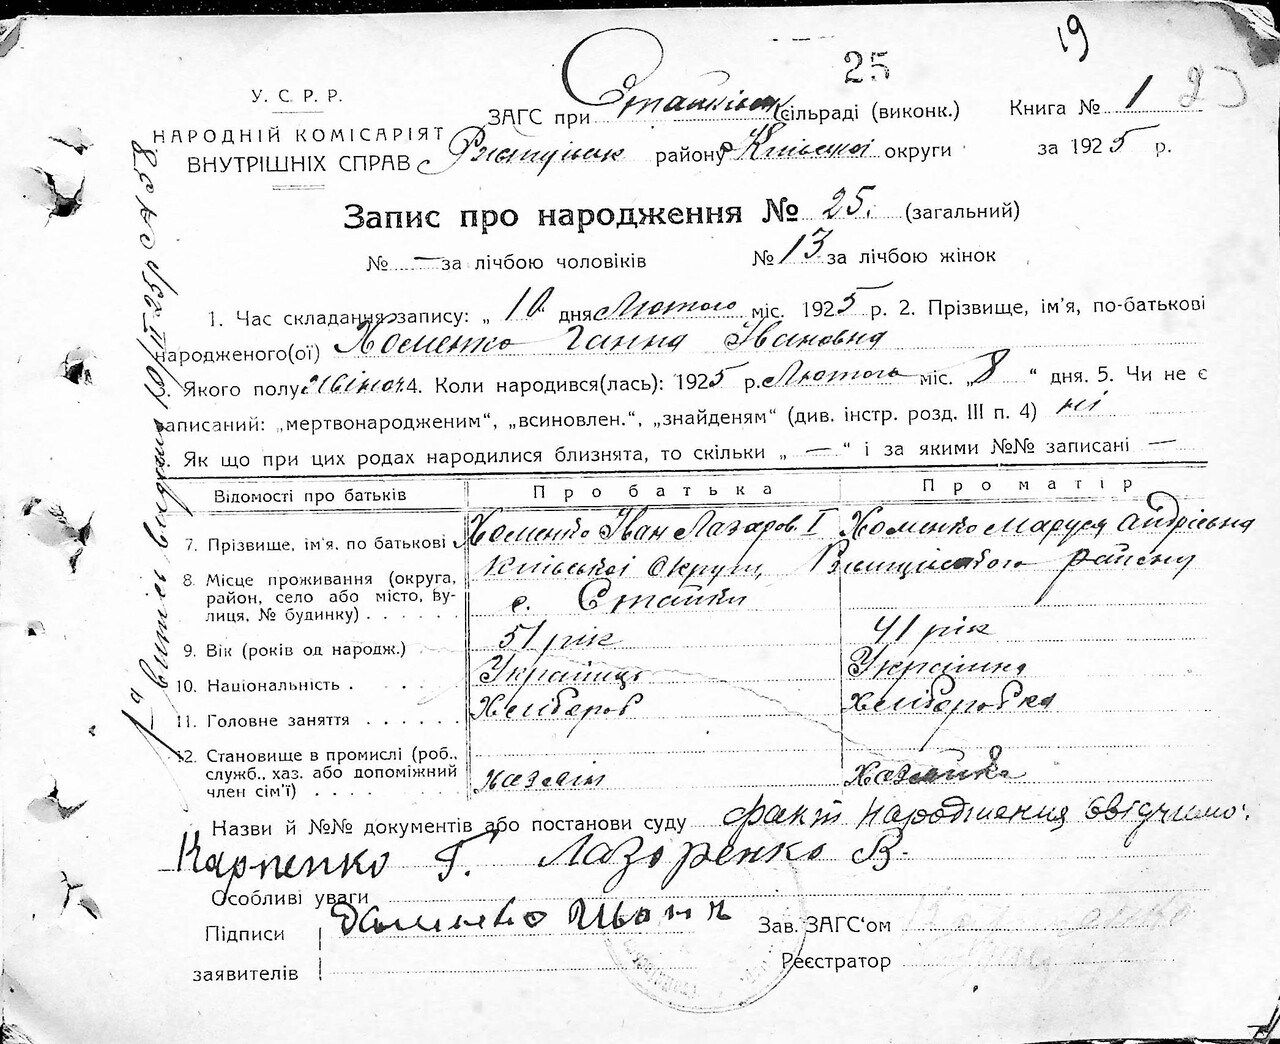 19
25
У. С. Р. Р.
НАРОДНІЙ КОМІСАРІЯТ
ВНУТРІШНІХ СПРАВ
ЗАГС при Стайківськ сільраді (виконк.) Книга № 1
району Київської округи за 1925 р.
Запис про народження № 25. (загальний)
№ — за лічбою чоловіків № 13 за лічбою жінок
1. Час складання запису: „ 10 дня Лютого міс. 1925 р. 2. Прізвище, ім’я, по-батькові
народженого(ої) Хоменко Ганна Івановна
. Якого полу жіноч 4. Коли народився(лась): 1925 р. Лютого міс. „ 8 “ дня. 5. Чи не є
записаний: „мертвонародженим“, „всиновлен.“, „знайденям“ (див. інстр. розд. III п. 4) ні
. Як що при цих родах народилися близнята, то скільки „ — “ і за якими №№ записані —
Відомості про батьків Про батька Про матір
7. Прізвище, ім’я, по батькові Хоменко Іван Лазаров. I Хоменко Маруся Андрієвна
8. Місце проживання (округа, район, село або місто, вулиця, № будинку) . . . . . . Київської Округи, району
с. Стайки
9. Вік (років од народж.) 51 рік 41 рік
10. Національність . . . . . Українець Українка
11. Головне заняття . . . . . . Хлібороб Хліборобка
12. Становище в промислі (роб., служб., хаз. або допоміжний член сім’ї) . . . . . . . . Хазяїн Хазяйка
Назви й №№ документів або постанови суду факт народження свідчимо:
Карпенко Г. Лазоренко В.
Особливі уваги
Підписи заявителів Хоменко Иван
Зав. ЗАГС‘ом
Реєстратор
1а витяг видано 10/II 25 р № 58